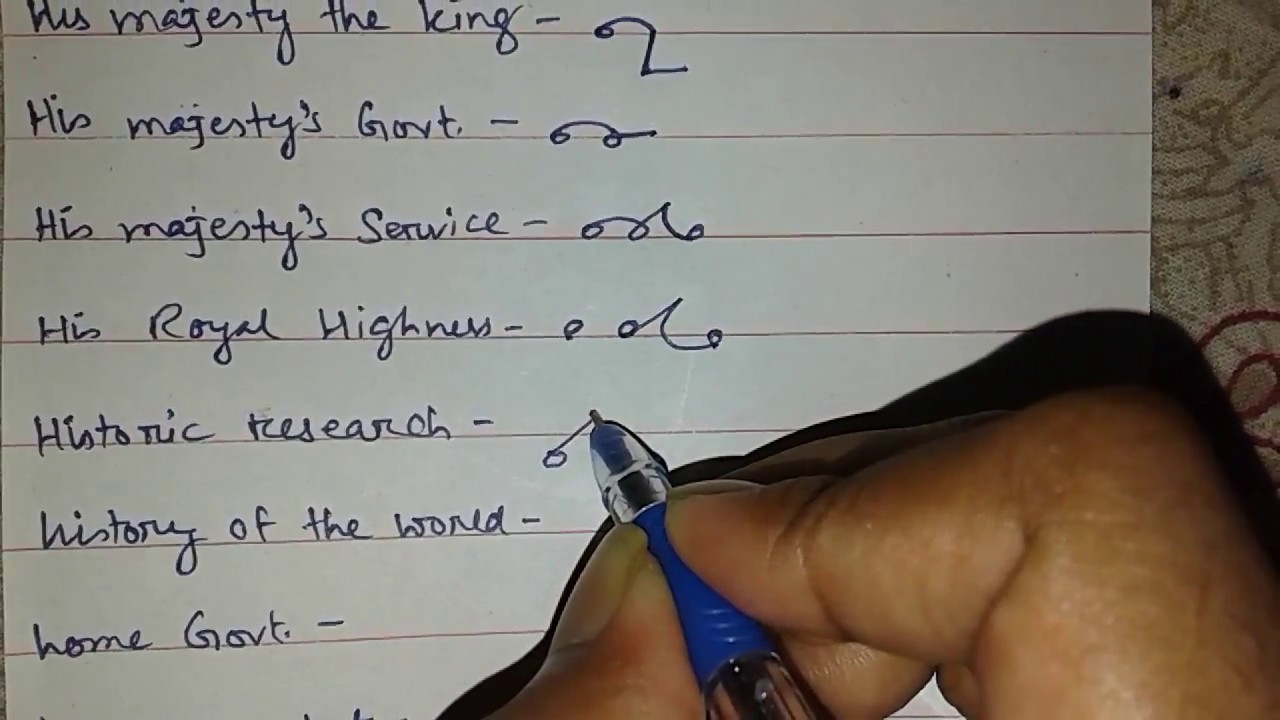 His majesty the king -
His majesty's Govt. -
His majesty's Service -
His Royal Highness -
Historic research -
history of the world -
home Govt. -